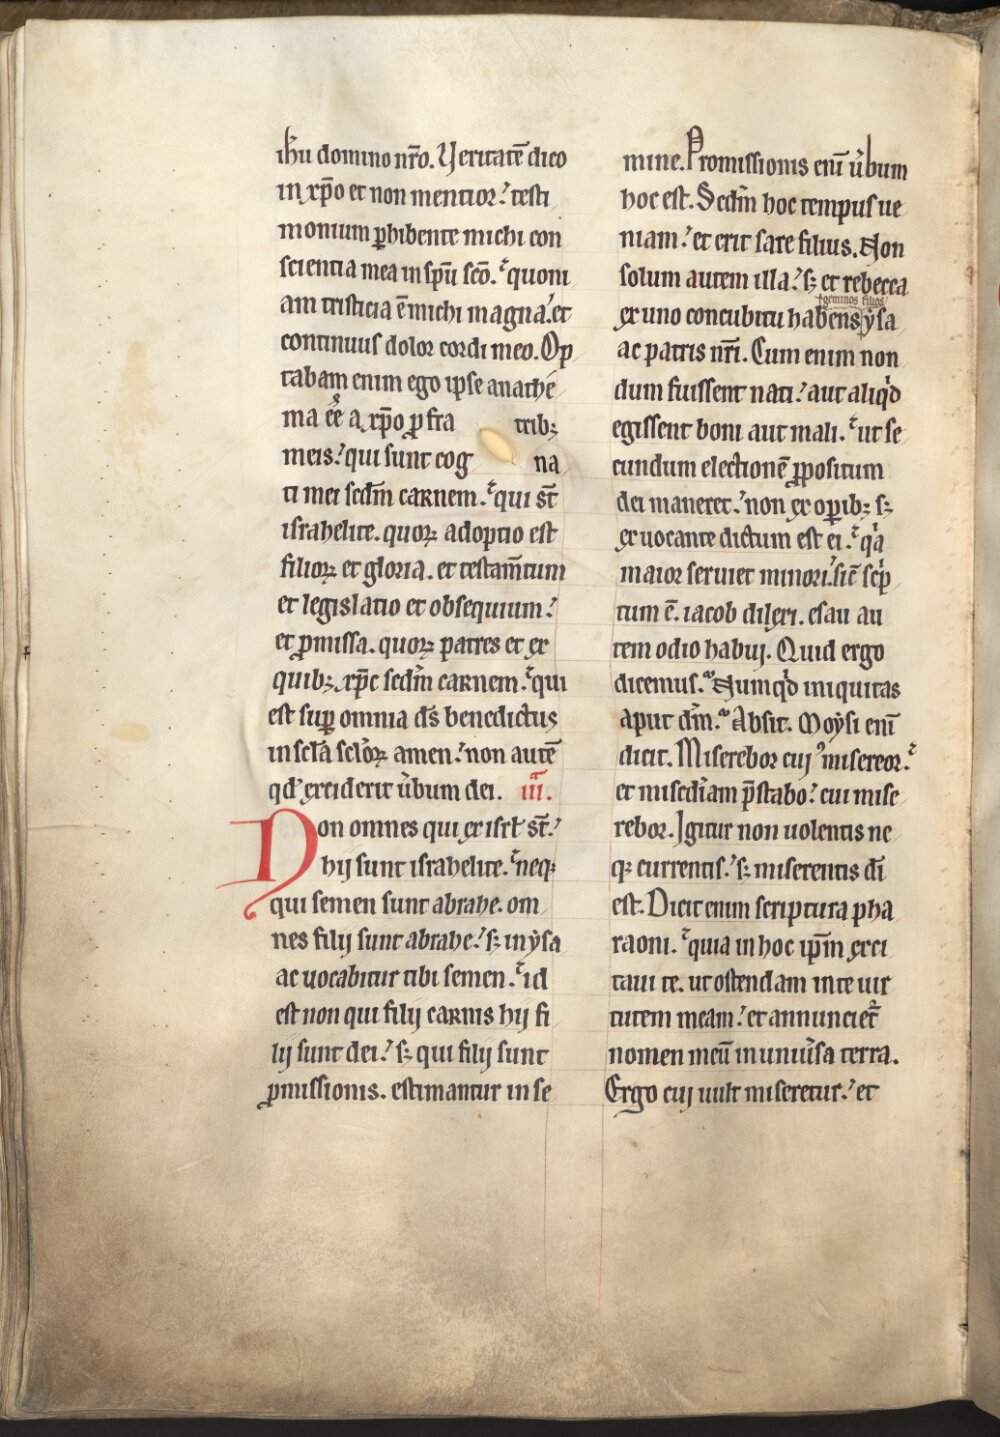 ih̄u domino nr̄o. Veritatē dico
in xp̄o et non mentior. testi
monium ꝑhibente michi con
scientia mea in sp̄u sc̄o. quoni
am tristicia ē michi magna. et
continuus dolor cordi meo. Op
tabam enim ego ipse anathe
ma eē a xp̄o ꝓ fra tribꝫ
meis. qui sunt cog na
ti mei scdm̄ carnem. qui st̄
israhelite. quoꝝ adoptio est
filioꝝ et gloria. et testam̄tum
et legislatio et obsequium.
et ꝓmissa. quoꝝ patres et ex
quibꝫ xp̄c scdm̄ carnem. qui
est suꝑ omnia ds̄ benedictus
in scl̄a scl̄oꝝ amen. non autē
qd' exciderit u̓bum dei. iii.
Non omnes qui ex isrl̄ st̄.
hij sunt israhelite. neqꝫ
qui semen sunt abrahe. om
nes filij sunt abrahe. sꝫ in ẏsa
ac uocabitur tibi semen. id
est non qui filij carnis hij fi
lij sunt dei. sꝫ qui filij sunt
ꝓmissionis. estimantur in se
mine. Promissionis eni̅ u̓bum
hoc est. Scdm̄ hoc tempus ue
niam. et erit sare filius. Non
solum autem illa. sꝫ et rebecca
geminos filios
ex uno concubitu habens ẏsa
ac patris nr̄i. Cum enim non
dum fuissent nati. aut aliqͥd
egissent boni aut mali. ut se
cundum electionē ꝓpositum
dei maneret. non ex oꝑibꝫ sꝫ
ex uocante dictum est ei. qͥa
maior seruiet minori. sic̄ scͥp
tum ē. iacob dilexi. esau au
tem odio habuj. Quid ergo
dicemus. Numqͥd iniquitas
aput dm̄. Absit. Moẏsi eni̅
dicit. Miserebor cuj misereor.
et misedi̅am p̄stabo. cui mise
rebor. Igitur non uolentis ne
qꝫ currentis. sꝫ miserentis di̅
est. Dicit enim scriptura pha
raoni. quia in hoc ip̄m exci
taui te. ut ostendam in te uir
tutem meam. et annuncietᷣ
nomen meū in uniu̓sa terra.
Ergo cuj uult miseretur. et